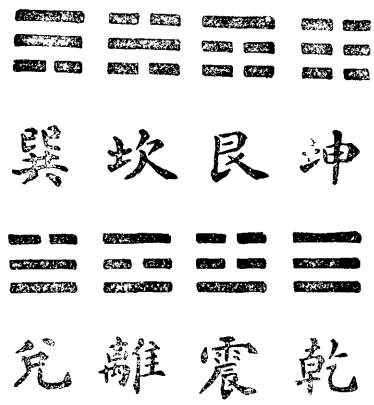 巽 坎 艮 坤
兌 離 震 乾